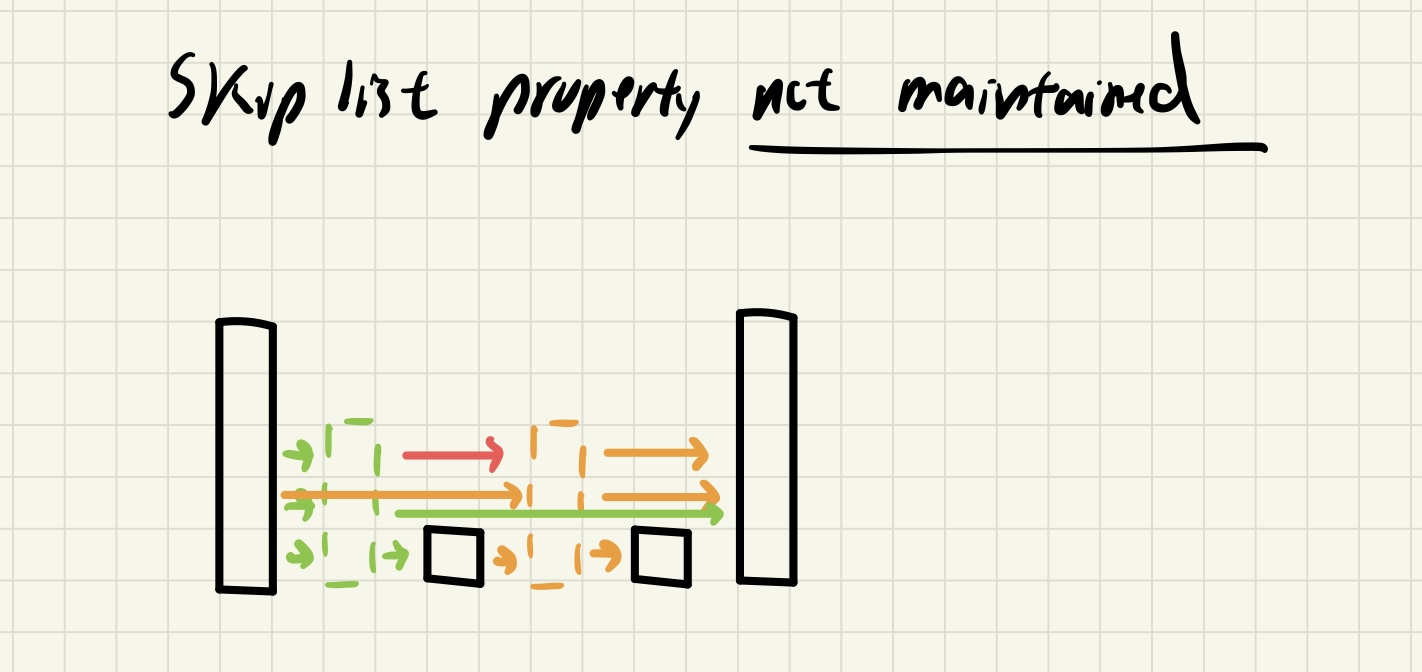 Skip list property not maintained